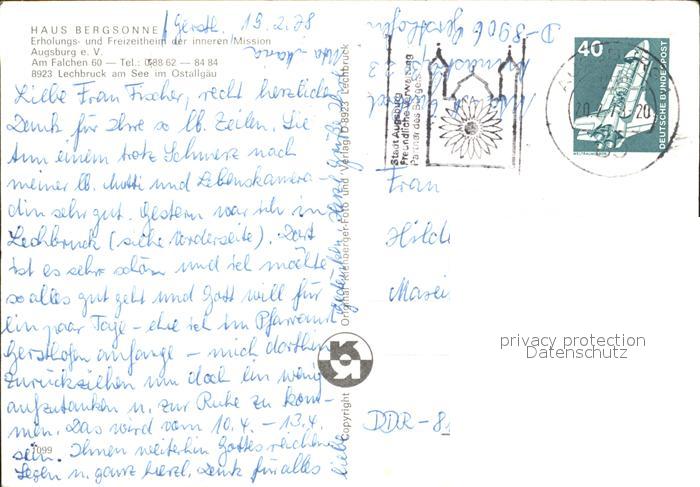 HAUS BERGSONNE
Erholungs- und Freizeitheim der inneren Mission
Augsburg e. V.
Am Falchen 60 — Tel.: 0886 62 — 84 84
8923 Lechbruck am See im Ostallgäu
Gersth. 19.2.78
Liebe Frau Fischer, recht herzlichen
Dank für Ihre so lb. Zeilen. Sie
tun einem trotz Schmerz nach
meiner lb. Mutti und Lebenskamera-
din sehr gut. Gestern war ich in
Lechbruck (siehe Vorderseite). Dort
ist es sehr schön und ich möchte
so alles gut geht und Gott will für
ein paar Tage - ehe ich im Pfarramt
Gersthofen anfange - mich dorthin
zurückziehen um doch ein wenig
aufzutanken u. zur Ruhe zu kom-
men. Das wird vom 10.4. - 13.4.
sein. Ihnen weiterhin Gottes reichen
Segen u. ganz herzl. Dank für alles
liebe
1099
Copyright
Original Kienberger-Foto und Verlag D-8923 Lechbruck
D-8906 Gersthofen
Stadt Augsburg
Freundliche Verwaltung
Partner des Bürgers
20
40
DEUTSCHE BUNDESPOST
WELTRAUMLABOR
Frau
Hild
Marei
DDR - 8
privacy protection
Datenschutz